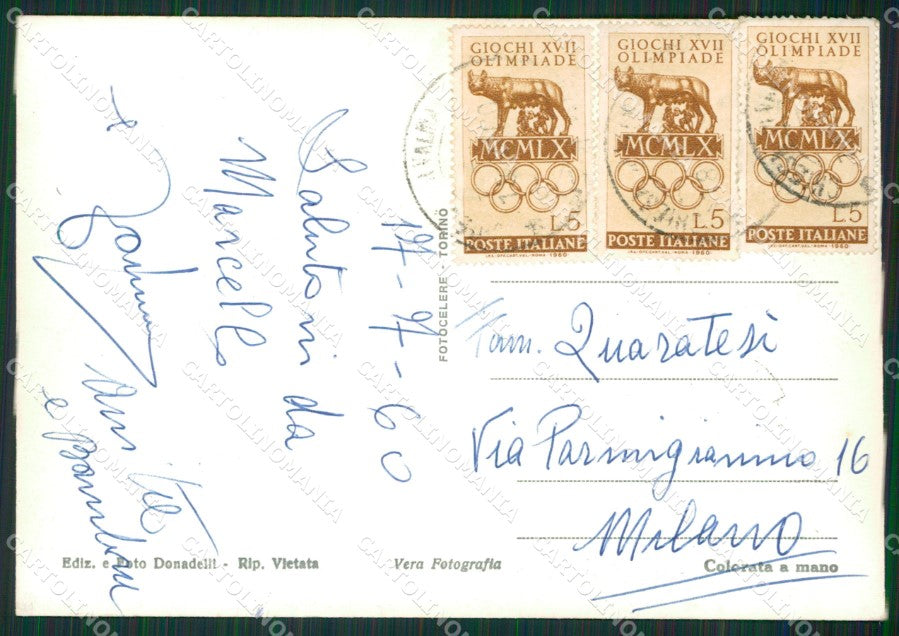 GIOCHI XVII
OLIMPIADE
MCMLX
L.5
POSTE ITALIANE
IST. POL. STATO-OFF. CARTE VALORI-ROMA 1960
GIOCHI XVII
OLIMPIADE
MCMLX
L.5
POSTE ITALIANE
GIOCHI XVII
OLIMPIADE
MCMLX
L.5
POSTE ITALIANE
17-7-60
Saluti da
Marcello
e
e Bambini
FOTOCELERE TORINO
Fam. Quaratesi
Via Parmigianino 16
Milano
Ediz. e Foto Donadelli - Rip. Vietata
Vera Fotografia
Colorata a mano
CARTOLINOMANIA